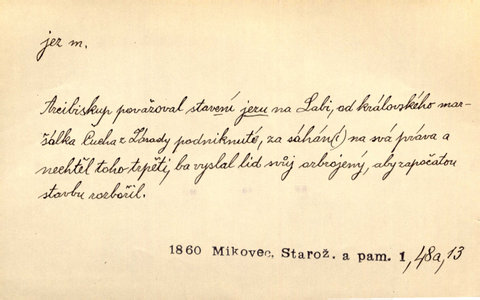 jez m.
Arcibiskup považoval stavení jezu na Labi, od královského mar-
šálka Čucha z Zásady podniknuté, za sáhán(í) na svá práva a
nechtěl toho trpěti, ba vyslal lid svůj ozbrojený, aby započatou
stavbu rozbořil.
1860 Mikovec, Starož. a pam. 1, 48a, 13